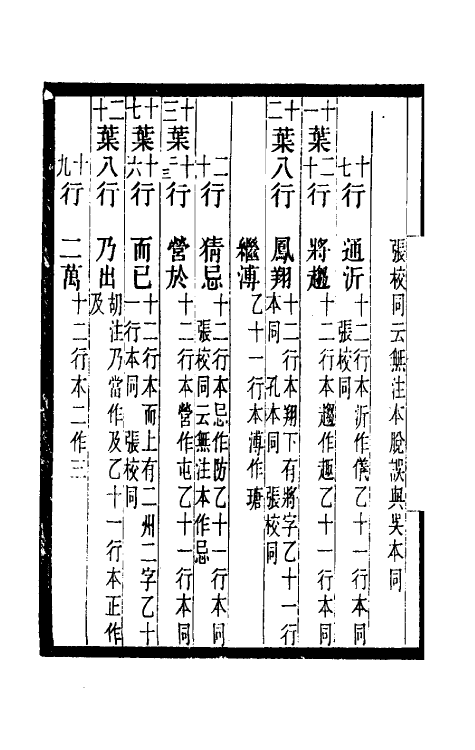 張校同云無注本脫誤與吳本同
十七行 通沂 十二行本沂作儀乙十一行本同
張校同
十一葉二十行 將趨 十二行本趨作趣乙十一行本同
十二葉八行 鳳翔 十二行本翔下有將字乙十一行
本同 孔本同 張校同
繼溥 乙十一行本溥作瑭
二十行 猜忌 十二行本忌作防乙十一行本同
張校同云無注本作忌
十三葉十二三行 營於 十二行本營作屯乙十一行本同
十七葉十六行 而已 十二行本而上有二州二字乙十
一行本同 張校同
二十葉八行 乃出 胡注乃當作及乙十一行本正作
及
十九行 二萬 十二行本二作三